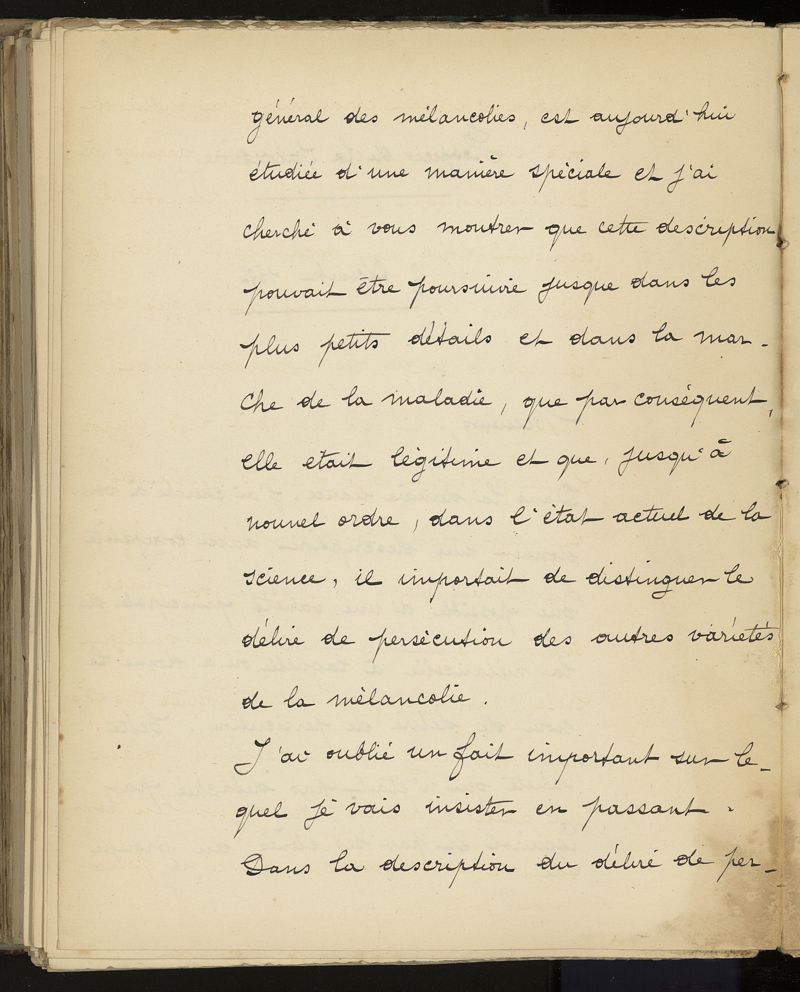 général des mélancolies, est aujourd'hui
étudiée d'une manière spéciale et j'ai
cherché à vous montrer que cette description
pouvait être poursuivie jusque dans les
plus petits détails et dans la mar-
che de la maladie, que par conséquent,
elle était légitime et que, jusqu'à
nouvel ordre, dans l'état actuel de la
science, il importait de distinguer le
délire de persécution des autres variétés
de la mélancolie.
J'ai oublié un fait important sur le-
quel je vais insister en passant.
Dans la description du délire de per-